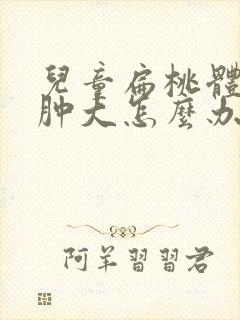 兒童扁桃體
肿大怎麼办
阿羊習習君